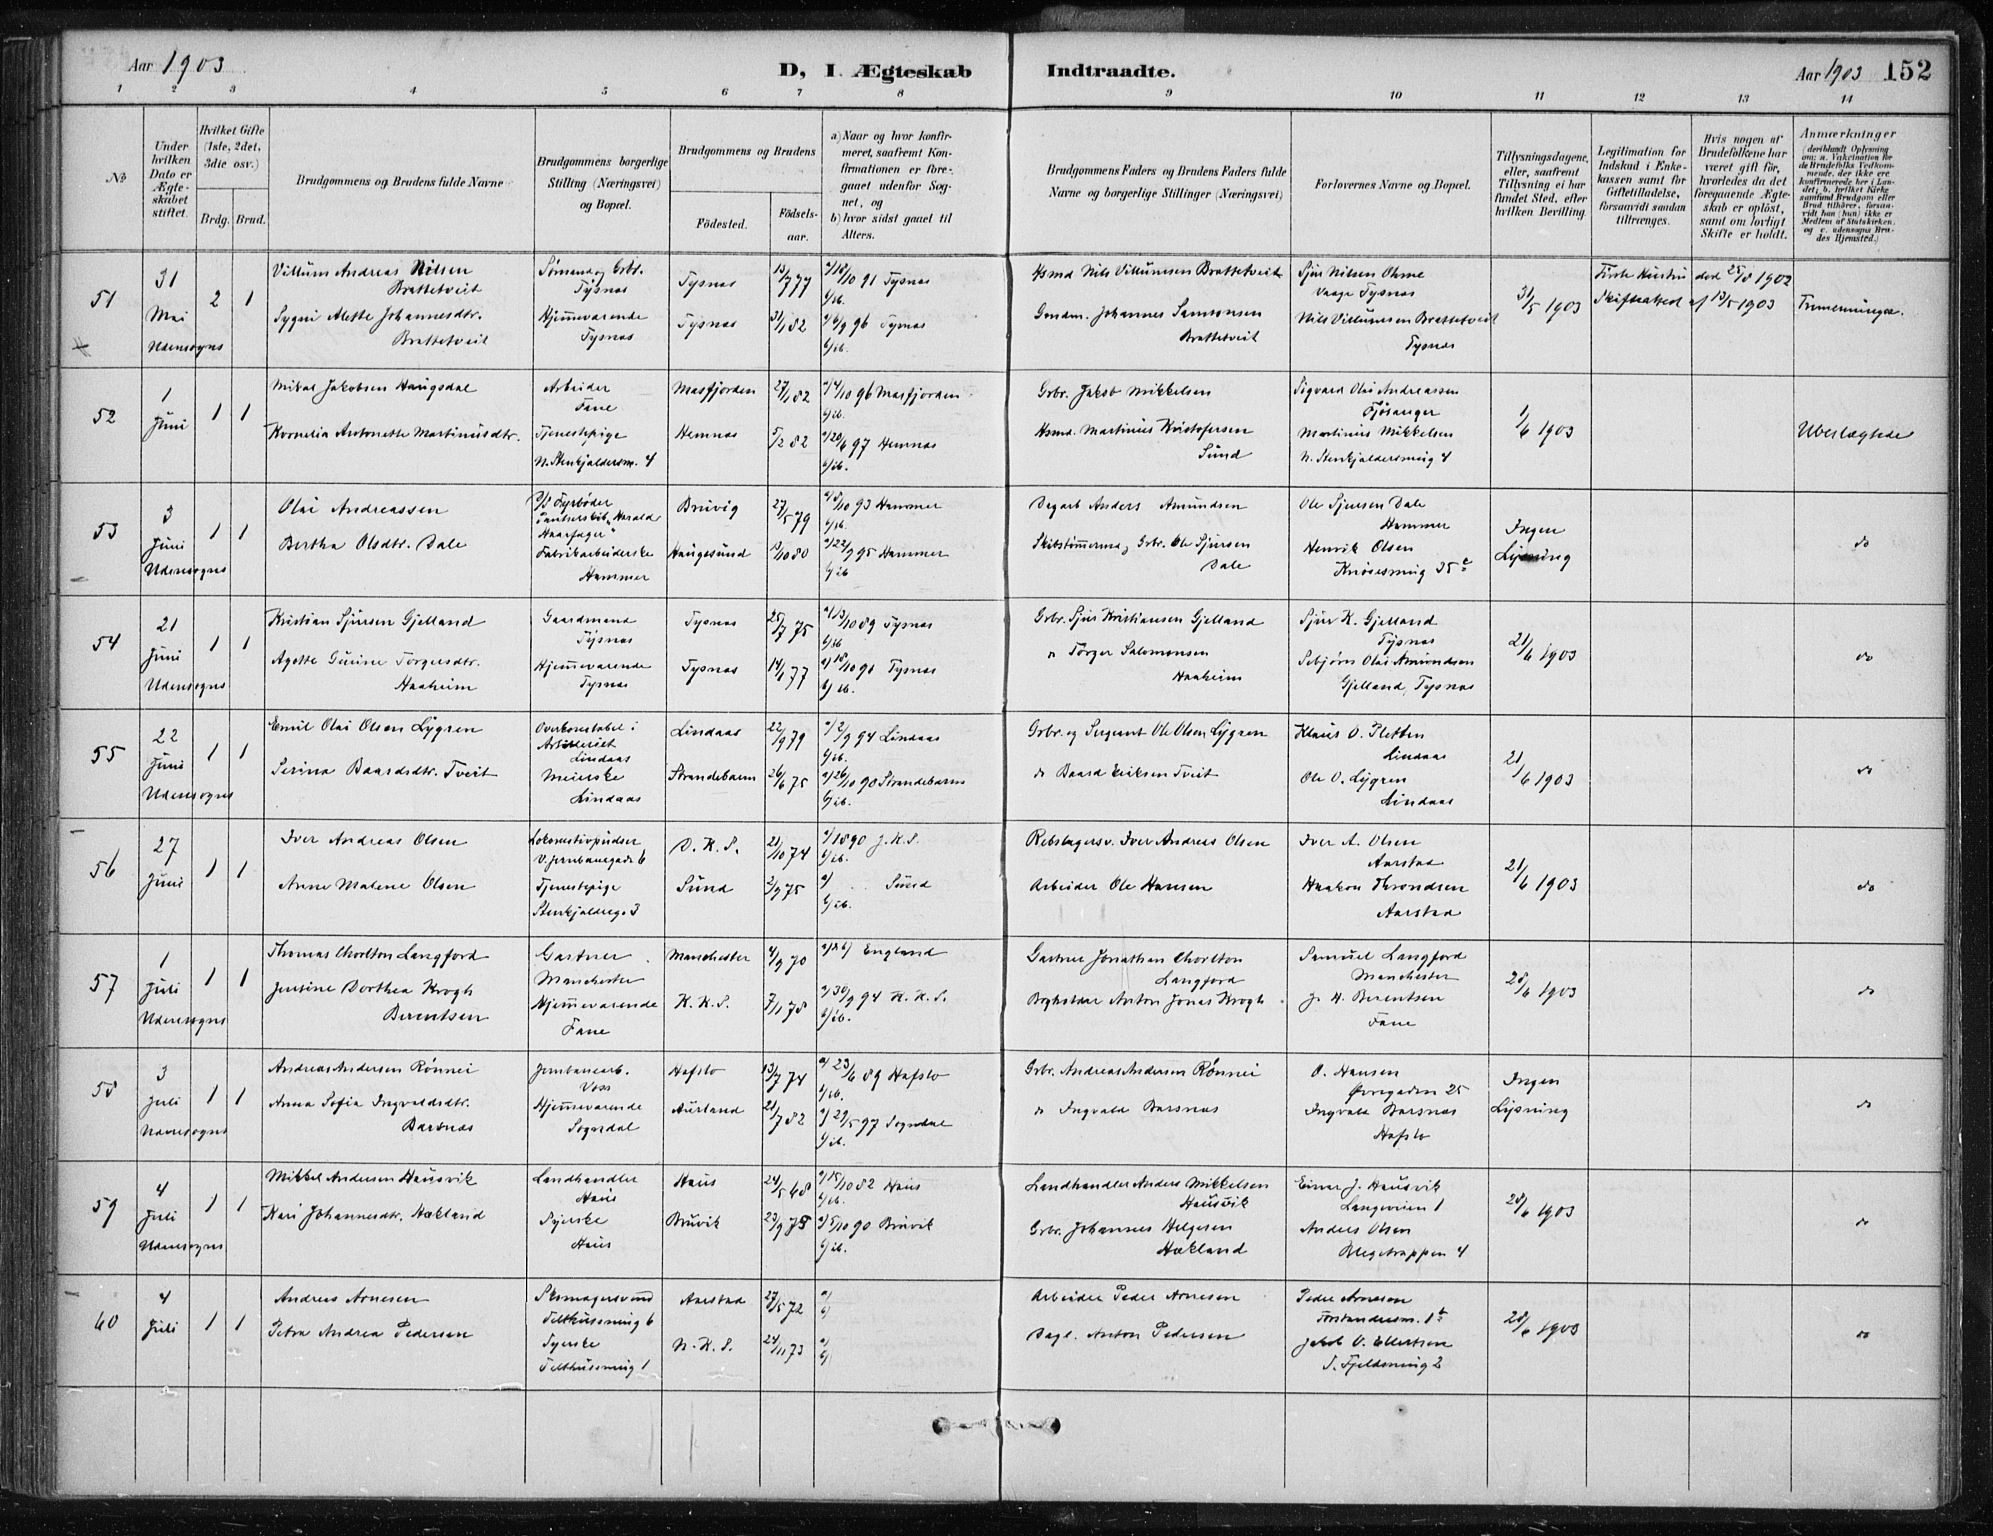 Aar 1903
D, I. Ægteskab Indtraadte.
Aar 1903 152
1 2 3 4 5 6 7 8 9 10 11 12 13 14
No
Under hvilken Dato er Ægteskabet stiftet.
Hvilket Gifte (1ste, 2det, 3die osv.)
Brdg. Brud.
Brudgommens og Brudens fulde Navne
Brudgommens borgerlige Stilling (Næringsvei) og Bopæl.
Brudgommens og Brudens
Fødested.
Fødselsaar.
a) Naar og hvor konfirmeret, saafremt Konfirmationen er foregaaet udenfor Sognet, og
b) hvor sidst gaaet til Alters.
Brudgommens Faders og Brudens Faders fulde Navne og borgerlige Stillinger (Næringsvei)
Forlovernes Navne og Bopæl.
Tillysningsdagene, eller, saafremt Tillysning ei har fundet Sted, efter hvilken Bevilling.
Legitimation for Indskud i Enkekassen samt for Giftetilladelse, forsaavidt saadan tiltrænges.
Hvis nogen af Brudefolkene har været gift før, hvorledes da det foregaaende Ægteskab er opløst, samt om lovligt Skifte er holdt.
Anmærkninger (deriblandt Oplysning om: a. Vakcination for de Brudefolks Vedkommende, der ikke ere konfirmerede her i Landet; b. hvilket Kirkesamfund Brudgom eller Brud tilhører, forsaavidt han (hun) ikke er Medlem af Statskirken, og c. udensogns Brudes Hjemsted.)
51
31 Mai Udensogns
2 1
Villum Andreas Nilsen Brattetveit
Sømand og Grbr. Tysnæs
Tysnæs
13/7 77
a/ 18/10 91 Tysnæs
b/ ib.
Hsmd Nils Villumsen Brattetveit
Sjur Nilsen Ohme
Vaage Tysnæs
31/5 1903
Første Hustru død 25/8 1902
Skifteattest af 13/5 1903
Tremenninger.
Sygni Alette Johannesdtr. Brattetveit
Hjemmeværende Tysnæs
Tysnæs
31/1 82
a/ 6/9 96 Tysnæs
b/ ib.
Grdm. Johannes Samsonsen Brattetveit
Nils Villumsen Brattetveit
Tysnæs
52
1 Juni
1 1
Mikal Jakobsen Haugsdal
Arbeider Fane
Masfjorden
27/1 82
a/ 4/10 96 Masfjorden
b/ ib.
Grbr. Jakob Mikkelsen
Sigvard Olai Andreassen
Fjøsanger
1/6 1903
Ubeslægtede
Kornelia Antonette Martinusdtr.
Tjenestepige
N. Stenkjeldersm. 4
Hemnæs
5/2 82
a/ 20/6 97 Hemnæs
b/ ib.
Hsmd. Martinus Kristofersen Sund
Martinus Mikkelsen
N. Stenkjeldersmug 4
53
3 Juni Udensogns
1 1
Olai Andreassen
Fyrbøder Panserskib "Harald Haarfager"
Bruvig
27/5 79
a/ 8/10 93 Hammer
b/ ib.
Dagarb Anders Amundsen
Ole Sjursen Dale
Hammer
Ingen Lysning
do
Bertha Olsdtr. Dale
Fabrikarbeiderske Hammer
Haugesund
13/10 80
a/ 22/9 95 Hammer
b/ ib
Skibstømmerm. og Grbr. Ole Sjursen Dale
Henrik Olsen
Knøsesmug 35 c
54
21 Juni Udensogns
1 1
Kristian Sjursen Gjelland
Gaardmand Tysnæs
Tysnæs
25/7 75
a/ 13/10 89 Tysnæs
b/ ib
Grbr. Sjur Kristiansen Gjelland
Sjur K. Gjelland
Tysnæs
21/6 1903
do
Agette Gurine Torgersdtr. Haaheim
Hjemmeværende Tysnæs
Tysnæs
14/1 77
a/ 18/10 91 Tysnæs
b/ ib.
" Torger Salomonsen Haaheim
Sebjørn Olai Amundsen
Gjelland, Tysnæs
55
22 Juni Udensogns
1 1
Emil Olai Olsen Lygren
Overkonstabel i Artilleriet Lindaas
Lindaas
22/9 79
a/ 2/9 94 Lindaas
b/ ib.
Grbr. og Sergeant Ole Olsen Lygren
Klaus O. Pletten
Lindaas
21/6 1903
do
Serina Baardsdtr. Tveit
Meierske Lindaas
Strandebarm
26/6 75
a/ 26/10 90 Strandebarm
b/ ib.
do Baard Eriksen Tveit
Ole O. Lygren
Lindaas
56
27 Juni
1 1
Iver Andreas Olsen
Lokomotivpudser
V. Jernbanegade 6
D. K. S.
21/10 74
a/ 1890 J.K.S.
b/ ib.
Rebslagersv. Iver Andreas Olsen
Iver A. Olsen
Aarstad
21/6 1903
do
Anne Malene Olsen
Tjenestepige
Stenkjelderg. 3
Sund
2/9 75
a/ Sund
b/ ib.
Arbeider Ole Hansen
Haakon Throndsen
Aarstad
57
1 Juli Udensogns
1 1
Thomas Chorlton Langford
Gartner Manchester
Manchester
4/9 70
a/ & b/ England
Gartner Jonathan Chorlton Langford
Samuel Langford
Manchester
28/6 1903
do
Jensine Dorthea Krogh Berentsen
Hjemmeværende Fane
K.K.S.
7/1 78
a/ 30/9 94 K.K.S.
b/ ib.
Anton Jonas Krogh
J. H. Berentsen
Fane
58
3 Juli Udensogns
1 1
Andreas Andersen Rønnei
Jernbanearb. Voss
Hafslo
13/7 74
a/ 23/6 89 Hafslo
b/ ib.
Grbr. Andreas Andersen Rønnei
O. Hansen
Øvregaden 25
Ingen Lysning
do
Anna Sofia Ingvaldsdtr. Barsnæs
Hjemmeværende Sogndal
Aurland
21/7 82
a/ 29/5 97 Sogndal
b/ ib.
do Ingvald Barsnæs
Ingvald Barsnæs
Hafslo
59
4 Juli Udensogns
1 1
Mikkel Andersen Hausvik
Landhandler Haus
Haus
24/5 68
a/ 15/10 82 Haus
b/ ib.
Landhandler Anders Mikkelsen Hausvik
Einar J. Hausvik
Langeveien 1
28/6 1903
do
Kari Johannesdtr. Hækland
Syerske Haus
Bruvik
23/9 75
a/ 5/10 90 Bruvik
b/ ib.
Grbr. Johannes Helgesen Hækland
Anders Olsen
Blegetrappen 4
60
4 Juli
1 1
Andreas Arnesen
Skomagersvend
Telthussmug 6
Aarstad
27/5 72
a/
b/
Arbeider Peder Arnesen
Peder Arnesen
Forstandersm. 1 b
28/6 1903
do
Petra Andrea Pedersen
Syerske
Telthussmug 1
N.K.S.
24/11 73
a/
b/
Dagl. Anton Pedersen
Jakob O. Ellertsen
S. Fjeldsmug 2